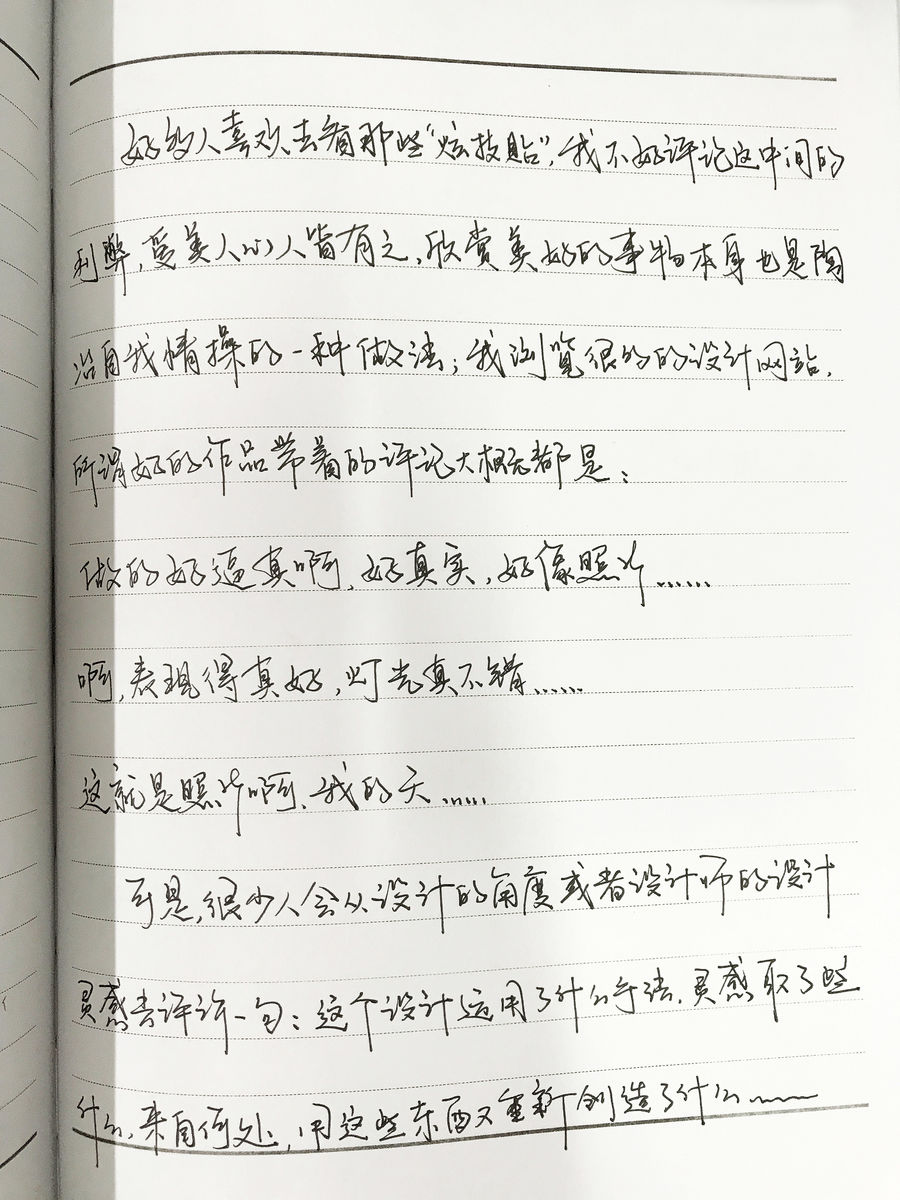 好多人喜欢去看那些“炫技贴”,我不好评论这中间的
利弊,爱美人心人皆有之,欣赏美好的事物本身也是陶
冶自我情操的一种做法;我浏览很多的设计网站,
所谓好的作品带着的评论大概都是:
做的好逼真啊,好真实,好像照片……
啊,表现得真好,灯光真不错……
这就是照片啊,我的天……
可是,很少人会从设计的角度或者设计师的设计
灵感去评许一句:这个设计运用了什么手法,灵感取了些
什么,来自何处,用这些东西又重新创造了什么……